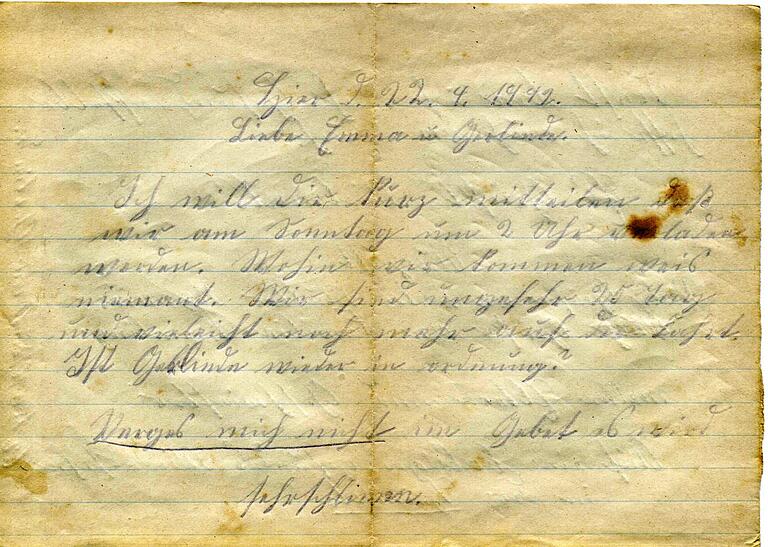 Hier d. 22. 4. 1942.
Liebe Emma u Gerlinde.
Ich will Dir kurz mitteilen daß
wir am Sonntag um 2 Uhr verladen
werden. Wohin wir kommen weis
niemant. Wir sind ungefehr 25 Tag
und vieleicht noch mehr auf der Fahrt.
Ist Gerlinde wieder in ordnung?
Verges mich nicht im Gebet es wird
sehr schlimm.